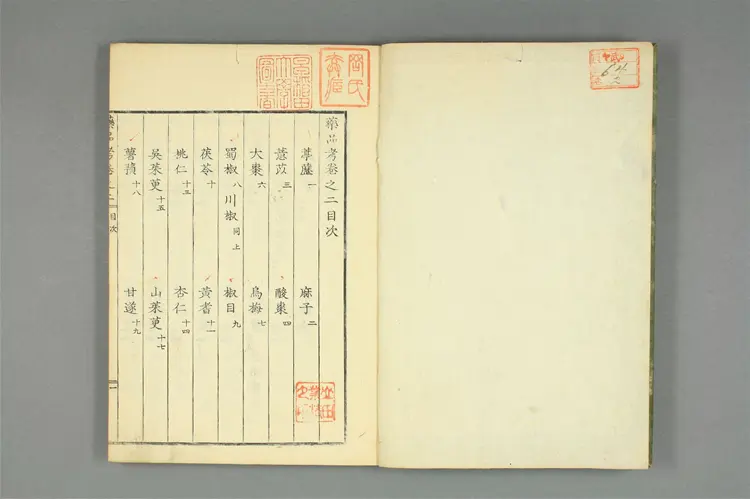 藥品考卷之二目次
葶藶一 麻子二
薏苡三 酸棗四
大棗六 烏梅七
蜀椒八 川椒同上 椒目九
茯苓十 黃耆十一
桃仁十三 杏仁十四
吳茱萸十五 山茱萸十七
薯蕷十八 甘遂十九
藥品考卷之二 目次